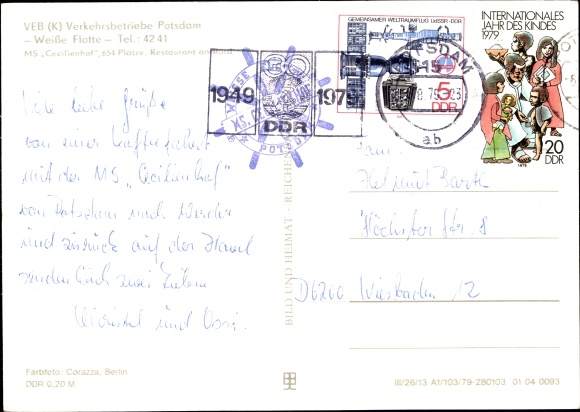 VEB (K) Verkehrsbetriebe Potsdam
– Weiße Flotte – Tel.: 4241
MS „Cecilienhof", 654 Plätze. Restaurant an Bord
Viele liebe Grüße
von einer
mit der MS „Cecilienhof"
von Potsdam nach Werder
und zurück auf der Havel
senden Euch zwei Lieben
Christel und Ossi.
Farbfoto: Corazza, Berlin
DDR 0,20 M
BILD UND HEIMAT · REICHENBACH
1949
1979
DDR
POTSDAM
GEMEINSAMER WELTRAUMFLUG UdSSR–DDR
5
DDR
POTSDAM
15
ab
INTERNATIONALES
JAHR DES KINDES
1979
20
DDR
1979
Helmut Barth
Höchster Str. 8
D6200 Wiesbaden 12
III/26/13 A1/103/79-280103 01 04 0093